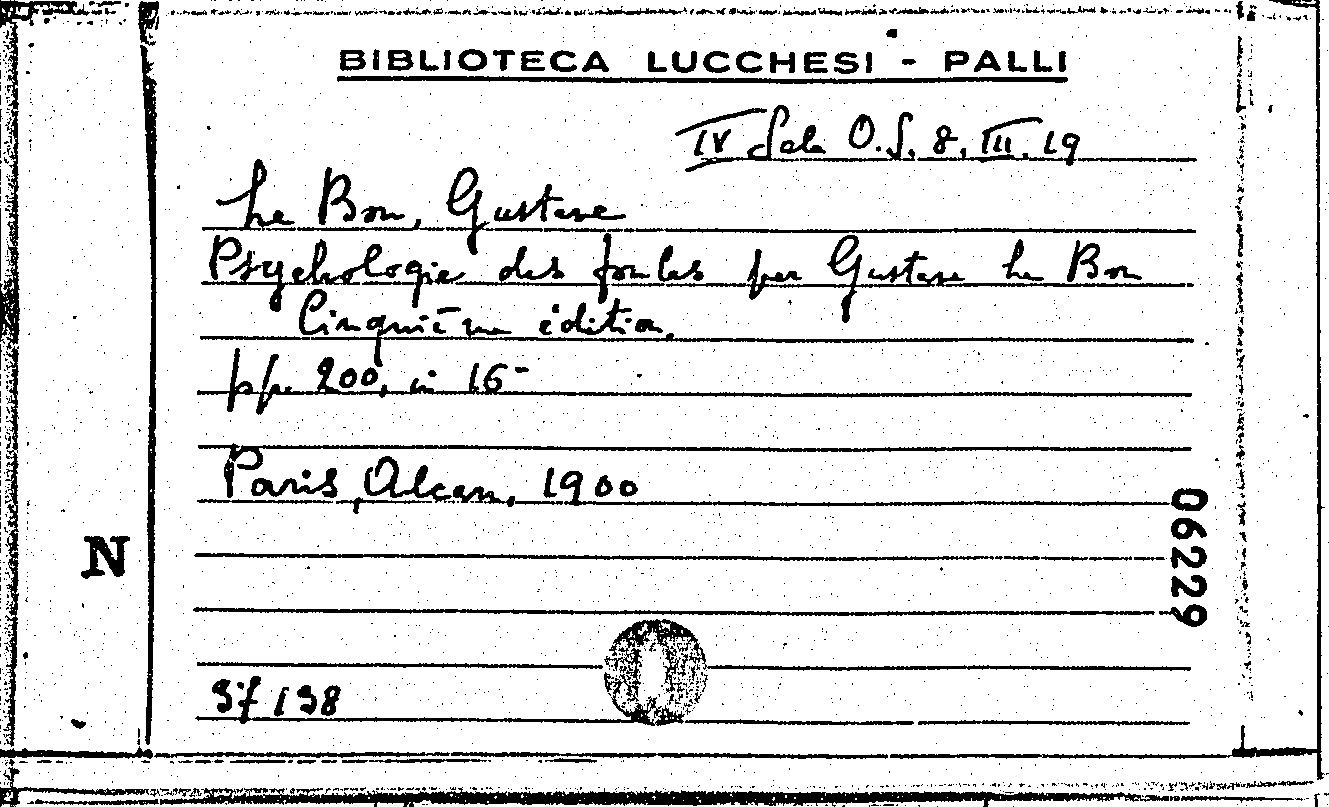 BIBLIOTECA LUCCHESI - PALLI
IV Sala O.S. 8. III. 19
Le Bon, Gustave
Psychologie des foules par Gustave Le Bon
Cinquième édition.
pp. 200, in 16-
Paris, Alcan, 1900
06229
N